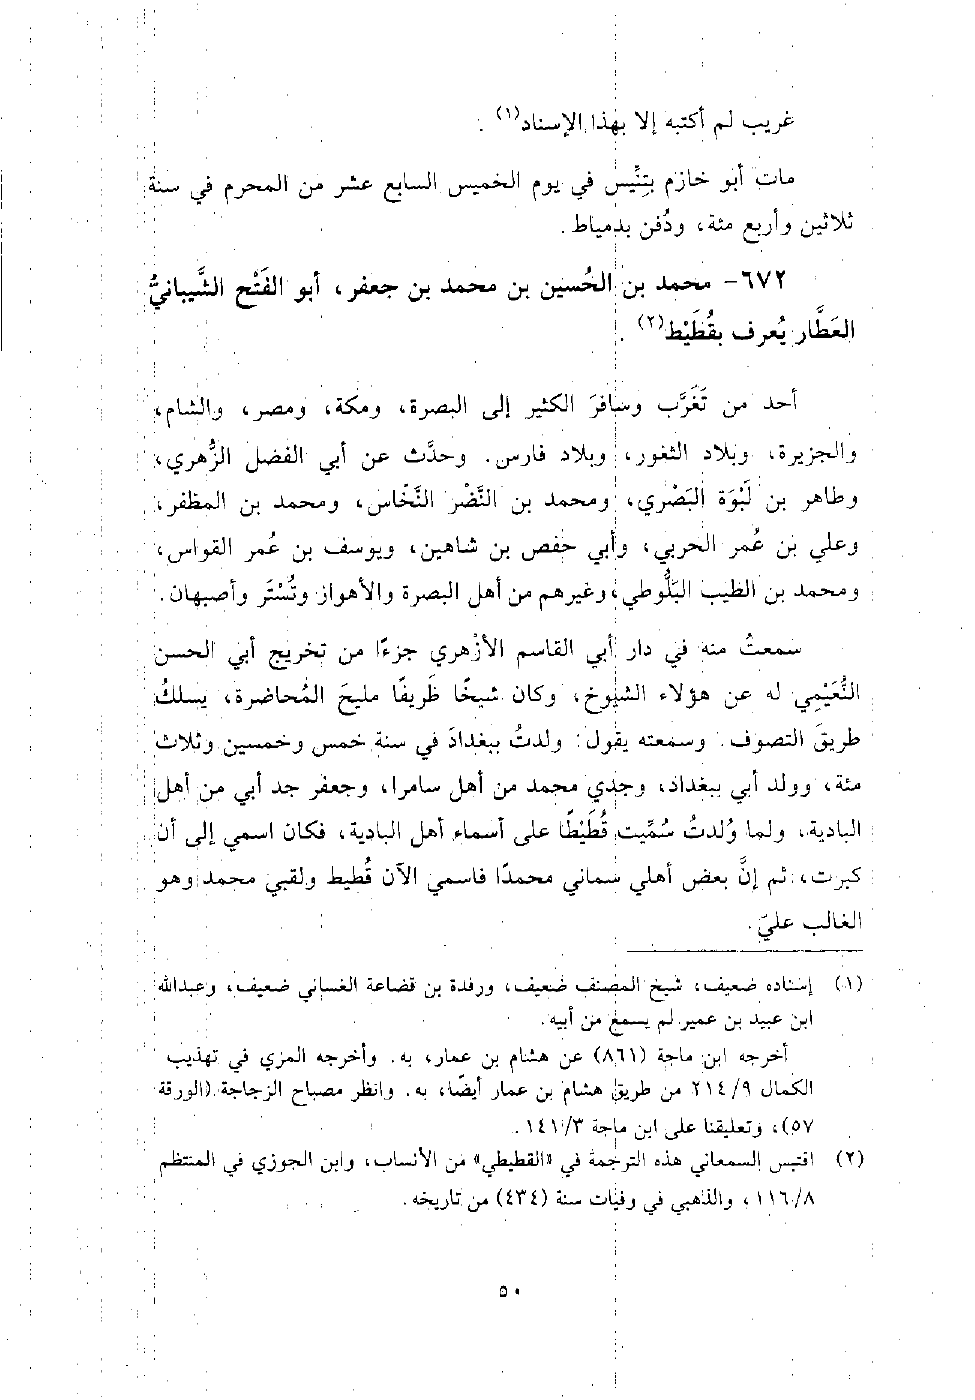 غريب لم أكتبه إلا بهذا الإسناد(١) .
مات أبو خازم بتِنِّيس في يوم الخميس السابع عشر من المحرم في سنة
ثلاثين وأربع مئة، ودُفن بدمياط.
٦٧٢- محمد بن الحُسين بن محمد بن جعفر، أبو الفَتْح الشَّيبانيُّ
العَطَّار يُعرف بقُطَيْط(٢) .
أحد من تَغَرَّب وسافرَ الكثير إلى البصرة، ومكة، ومصر، والشام،
والجزيرة، وبلاد الثغور، وبلاد فارس. وحدَّث عن أبي الفضل الزُّهري،
وطاهر بن لَبْوَة البَصْري، ومحمد بن النَّضْر النَّخَّاس، ومحمد بن المظفر،
وعلي بن عُمر الحربي، وأبي حفص بن شاهين، ويوسف بن عُمر القواس،
ومحمد بن الطيب البَلُّوطي، وغيرهم من أهل البصرة والأهواز وتُسْتَر وأصبهان.
سمعتُ منه في دار أبي القاسم الأزْهري جزءًا من تخريج أبي الحسن
النُّعَيْمِي له عن هؤلاء الشيوخ، وكان شيخًا ظَريفًا مليحَ المُحاضرة، يسلكُ
طريقَ التصوف. وسمعته يقول: ولدتُ ببغدادَ في سنة خمس وخمسين وثلاث
مئة، وولد أبي ببغداد، وجدي محمد من أهل سامرا، وجعفر جد أبي من أهل
البادية، ولما وُلدتُ سُمِّيت قُطَيْطًا على أسماء أهل البادية، فكان اسمي إلى أن
كبرت، ثم إنَّ بعض أهلي سماني محمدًا فاسمي الآن قُطيط ولقبي محمد وهو
الغالب عليّ.
(١) إسناده ضعيف، شيخ المصنف ضعيف، ورفدة بن قضاعة الغساني ضعيف، وعبدالله
ابن عبيد بن عمير لم يسمع من أبيه.
أخرجه ابن ماجة (٨٦١) عن هشام بن عمار، به. وأخرجه المزي في تهذيب
الكمال ٩/ ٢١٤ من طريق هشام بن عمار أيضًا، به. وانظر مصباح الزجاجة (الورقة
٥٧)، وتعليقنا على ابن ماجة ٣/ ١٤١ .
(٢) اقتبس السمعاني هذه الترجمة في «القطيطي» من الأنساب، وابن الجوزي في المنتظم
٨/ ١١٦، والذهبي في وفيات سنة (٤٣٤) من تاريخه.
٥٠